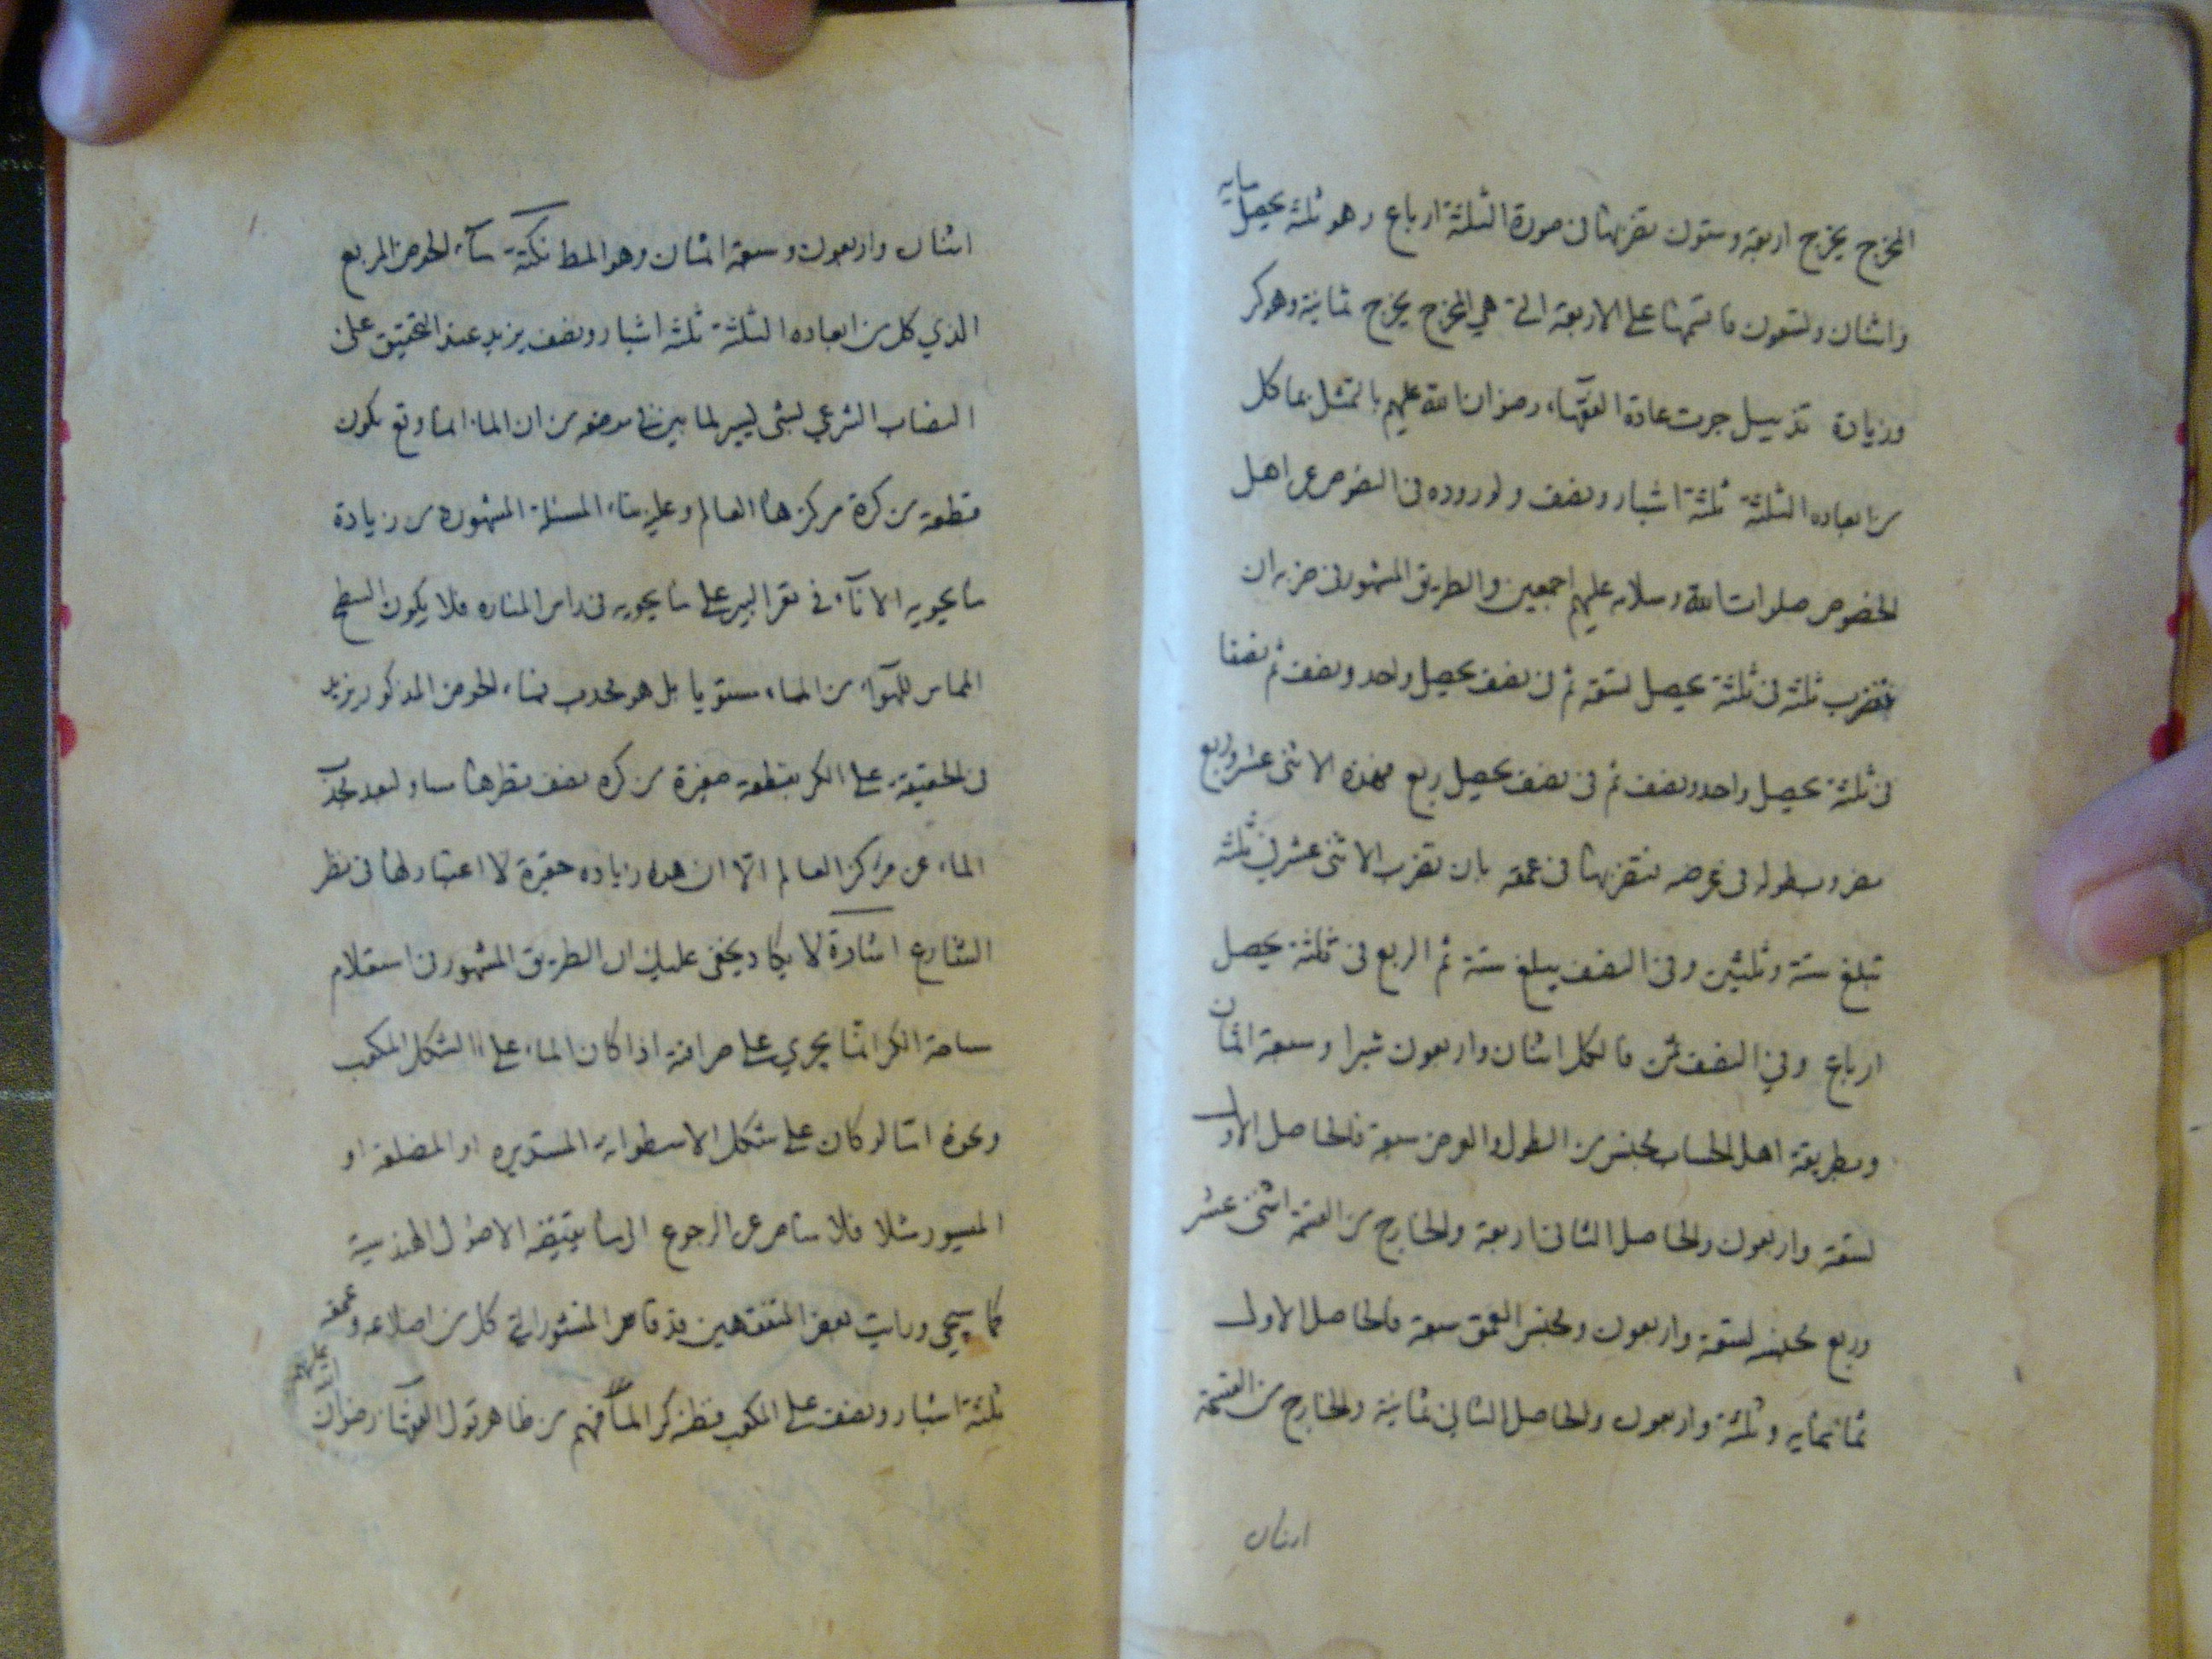 المخرج يخرج اربعة وستون تضربها فى صورة الثلثة ارباع وهو ثلثة يحصل مايه
واثنان وتسعون فاقسمها على الاربعة التى هي المخرج يخرج ثمانية وهو كر
وزيادة تذييل جرت عادة الفقهاء رضوان الله عليهم بالتمثيل بما كل
من ابعاده الثلثة ثلثة اشبار ونصف ولوروده فى النصوص عن اهل
الخصوص صلوات الله وسلامه عليهم اجمعين والطريق المشهور فى ضربه ان
تضرب ثلثة فى ثلثة يحصل تسعة ثم فى نصف يحصل واحد ونصف ثم نصفا
فى ثلثة يحصل واحد ونصف ثم فى نصف يحصل ربع فهذه الاثنى عشر وربع
مضروب طوله فى عرضه فتضربها فى عمقه بان تضرب الاثنى عشر فى ثلثة
تبلغ ستة وثلثين وفى النصف يبلغ ستة ثم الربع فى ثلثة يحصل
ارباع وفي النصف ثمن فالكل اثنان واربعون شبرا وسبعة اثمان
وبطريقة اهل الحساب مجنس من الطول والعرض سبعة فالحاصل الاول
تسعة واربعون والحاصل الثانى اربعة والخارج من القسمة اثنى عشر
وربع مجنسه تسعة واربعون ومجنس العمق سبعة فالحاصل الاول
ثمانمايه وثلثة واربعون والحاصل الثانى ثمانية والخارج من القسمة
اثنان
اثنان واربعون وسبعة اثمان وهو المط نكتة ماء الحوض المربع
الذي كل من ابعاده الثلثة ثلثة اشبار ونصف يزيد عند التحقيق على
النصاب الشرعي بشئ يسير لما بين فى موضعه من ان الماء اينما وقع يكون
قطعة من كرة مركزها العالم وعليه بناء المسئلة المشهورة من زيادة
ما يحويه الاناء فى قعر البير على ما يحويه فى راس المناره فلا يكون السطح
المماس للهواء من الماء مستويا بل هو محدب فماء الحوض المذكور يزيد
فى الحقيقة على الكر بقطعة صغيرة من كره نصف قطرها مساو لبعد محدب
الماء عن مركز العالم الا ان هذه زياده حقيرة لا اعتبار لها فى نظر
الشارع اشارة لا يكاد يخفى عليك ان الطريق المشهور فى استعلام
مساحة الكر انما يجري على صرافته اذا كان الماء على الشكل المكعب
ونحوه اما لو كان على شكل الاسطوانة المستديره او المضلعة او
مثلا فلا مناص عن الرجوع الى ما يقتضيه الاصول الهندسية
كما سيجى ورايت بعض المتفقهين قد قاس المنشور الذى كل من اضلاعه وعمقه
ثلثة اشبار ونصف على المكعب فظنه كرا لما فهم من ظاهر قول الفقهاء رضوان
الله عليهم